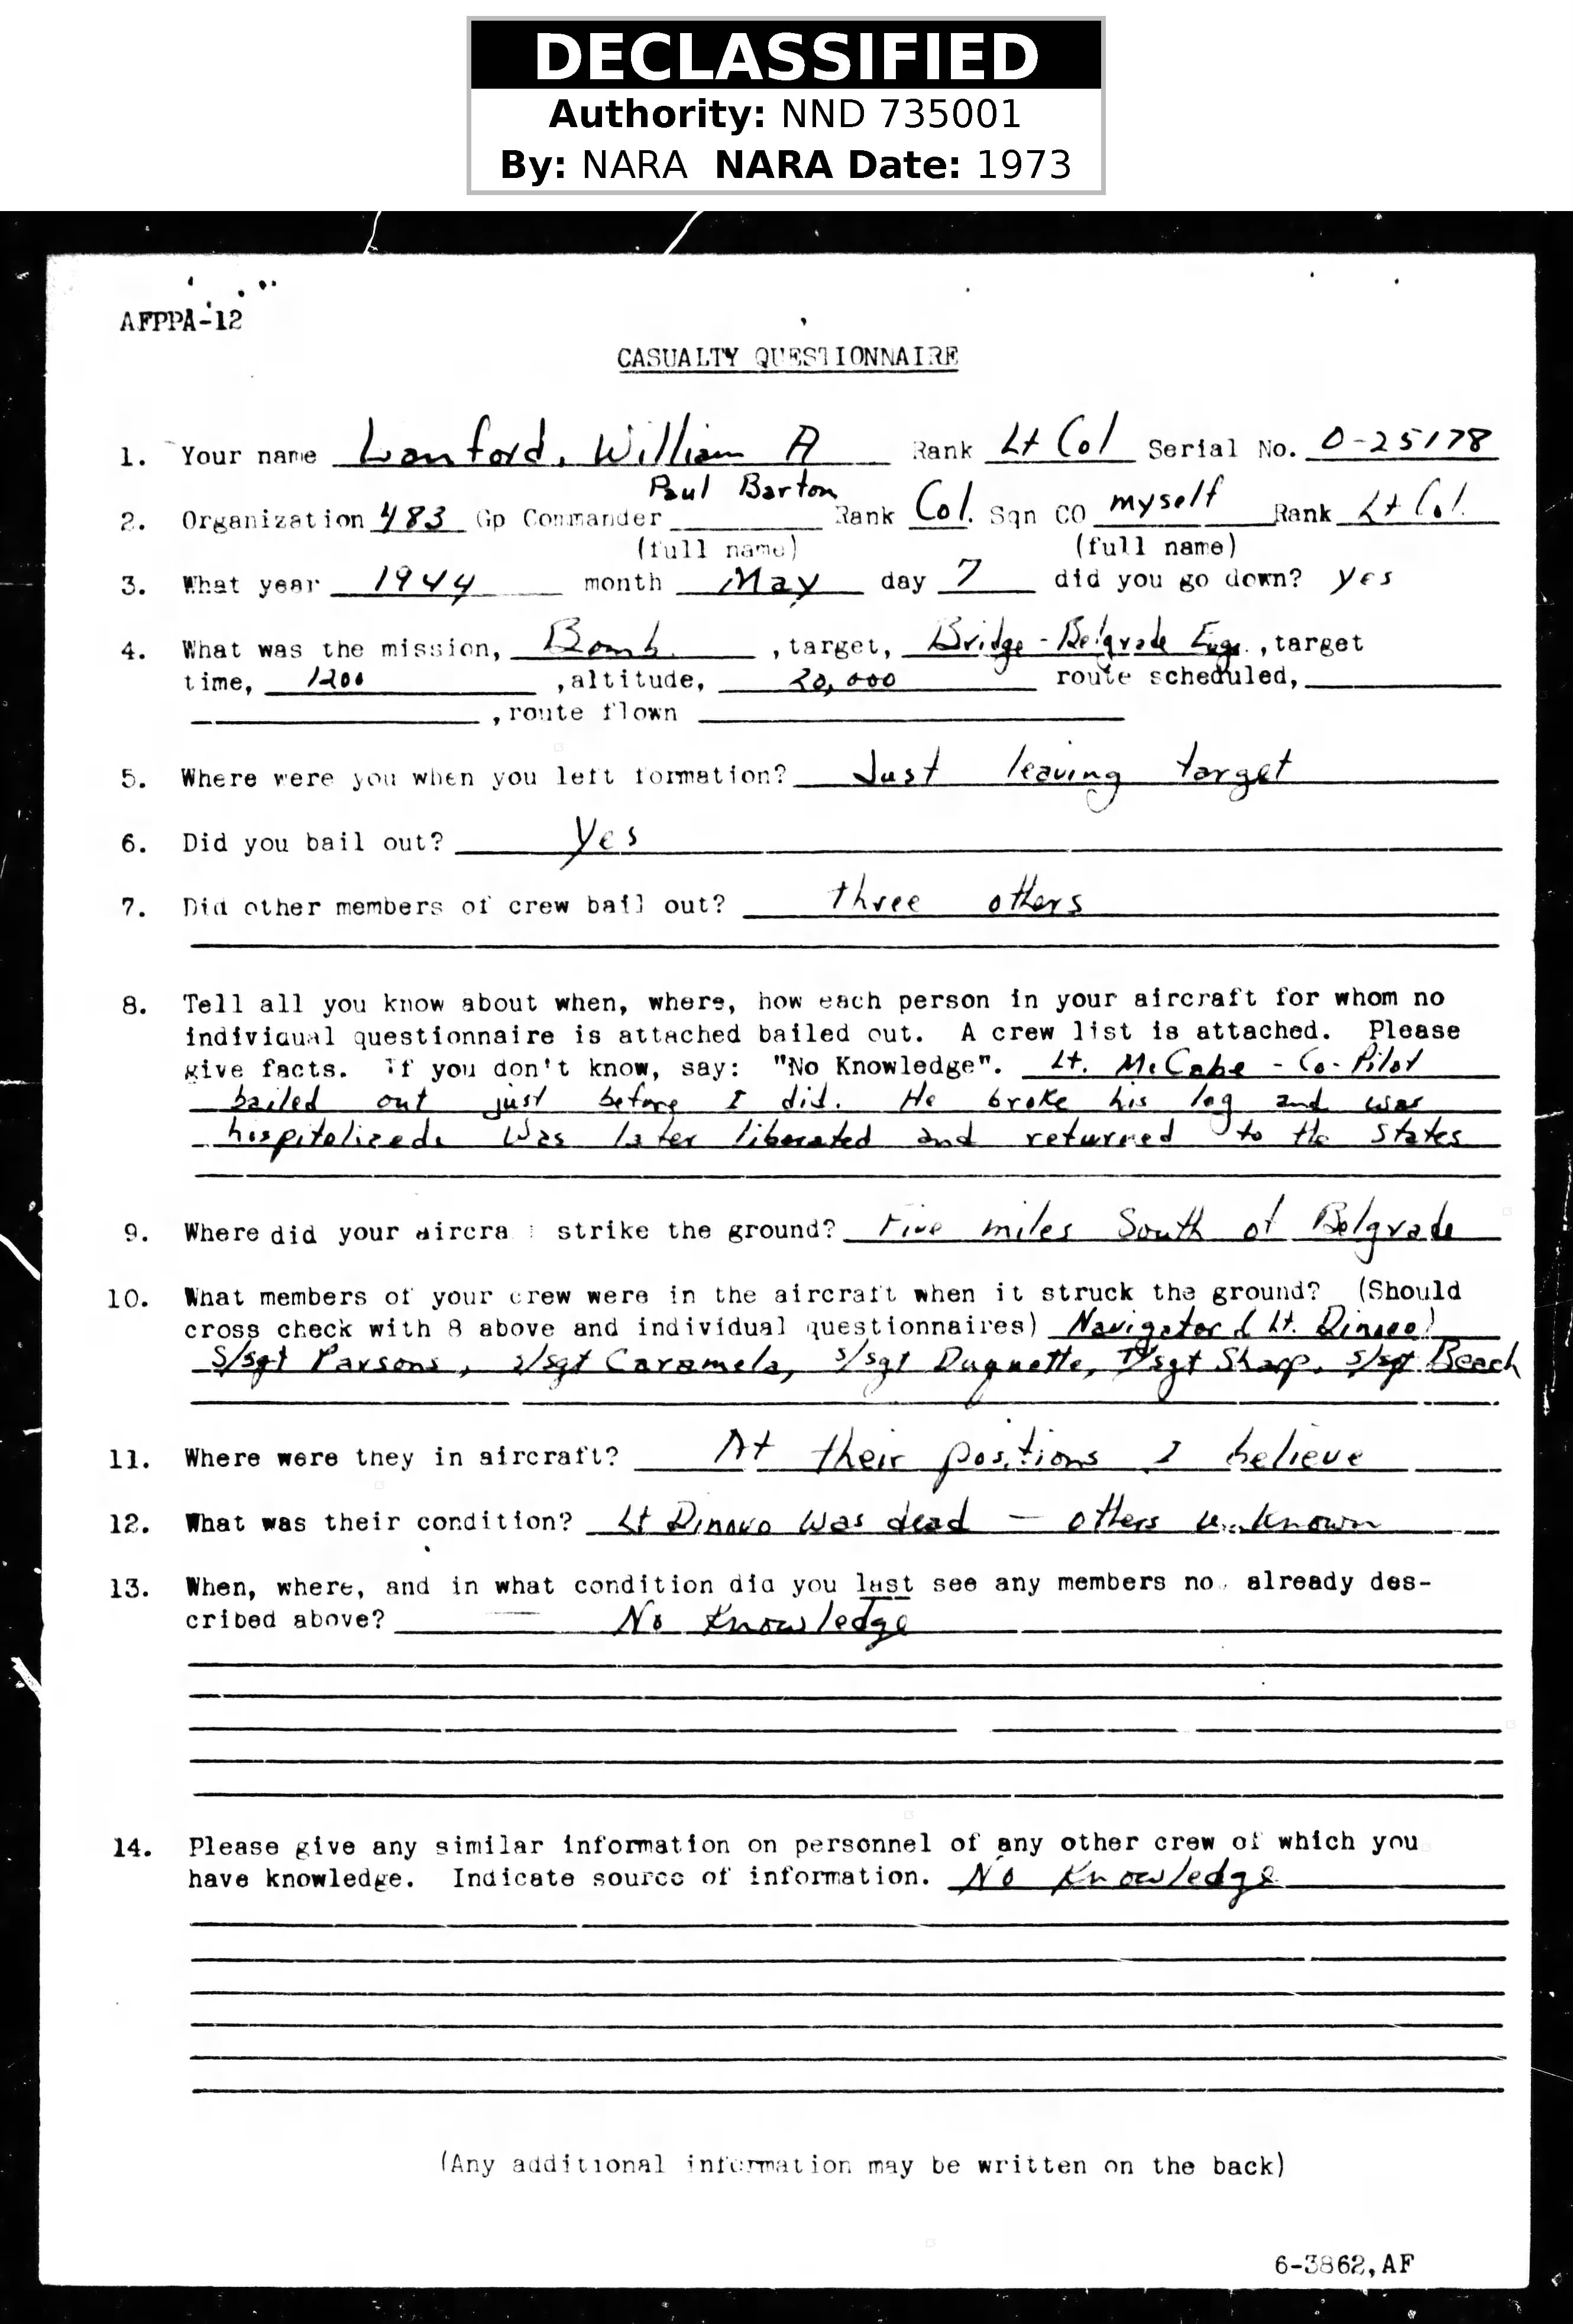 DECLASSIFIED
Authority: NND 735001
By: NARA NARA Date: 1973
AFPPA-12
CASUALTY QUESTIONNAIRE
1. Your name Lanford, William A Rank Lt Col Serial No. O-25178
Paul Barton
2. Organization 483 Gp Commander Rank Col. Sqn CO myself Rank Lt Col.
(full name) (full name)
3. What year 1944 month May day 7 did you go down? yes
4. What was the mission, Bomb , target, Bridge - Belgrade , target
time, 1200 , altitude, 20,000 route scheduled,
, route flown
5. Where were you when you left formation? Just leaving target
6. Did you bail out? Yes
7. Did other members of crew bail out? three others
8. Tell all you know about when, where, how each person in your aircraft for whom no
individual questionnaire is attached bailed out. A crew list is attached. Please
give facts. If you don't know, say: "No Knowledge". Lt. McCabe - Co-Pilot
bailed out just before I did. He broke his leg and was
hospitalized. Was later liberated and returned to the States
9. Where did your aircra strike the ground? Five miles South of Belgrade
10. What members of your crew were in the aircraft when it struck the ground? (Should
cross check with 8 above and individual questionnaires) Navigator (Lt. Dinovo)
S/sgt Parsons, s/sgt Caramela, s/sgt Duquette, T/sgt Sharp, s/sgt Beach
11. Where were they in aircraft? At their positions I believe
12. What was their condition? Lt Dinovo was dead — others unknown
13. When, where, and in what condition did you last see any members no already des-
cribed above? — No Knowledge
14. Please give any similar information on personnel of any other crew of which you
have knowledge. Indicate source of information. No Knowledge
(Any additional information may be written on the back)
6-3862, AF